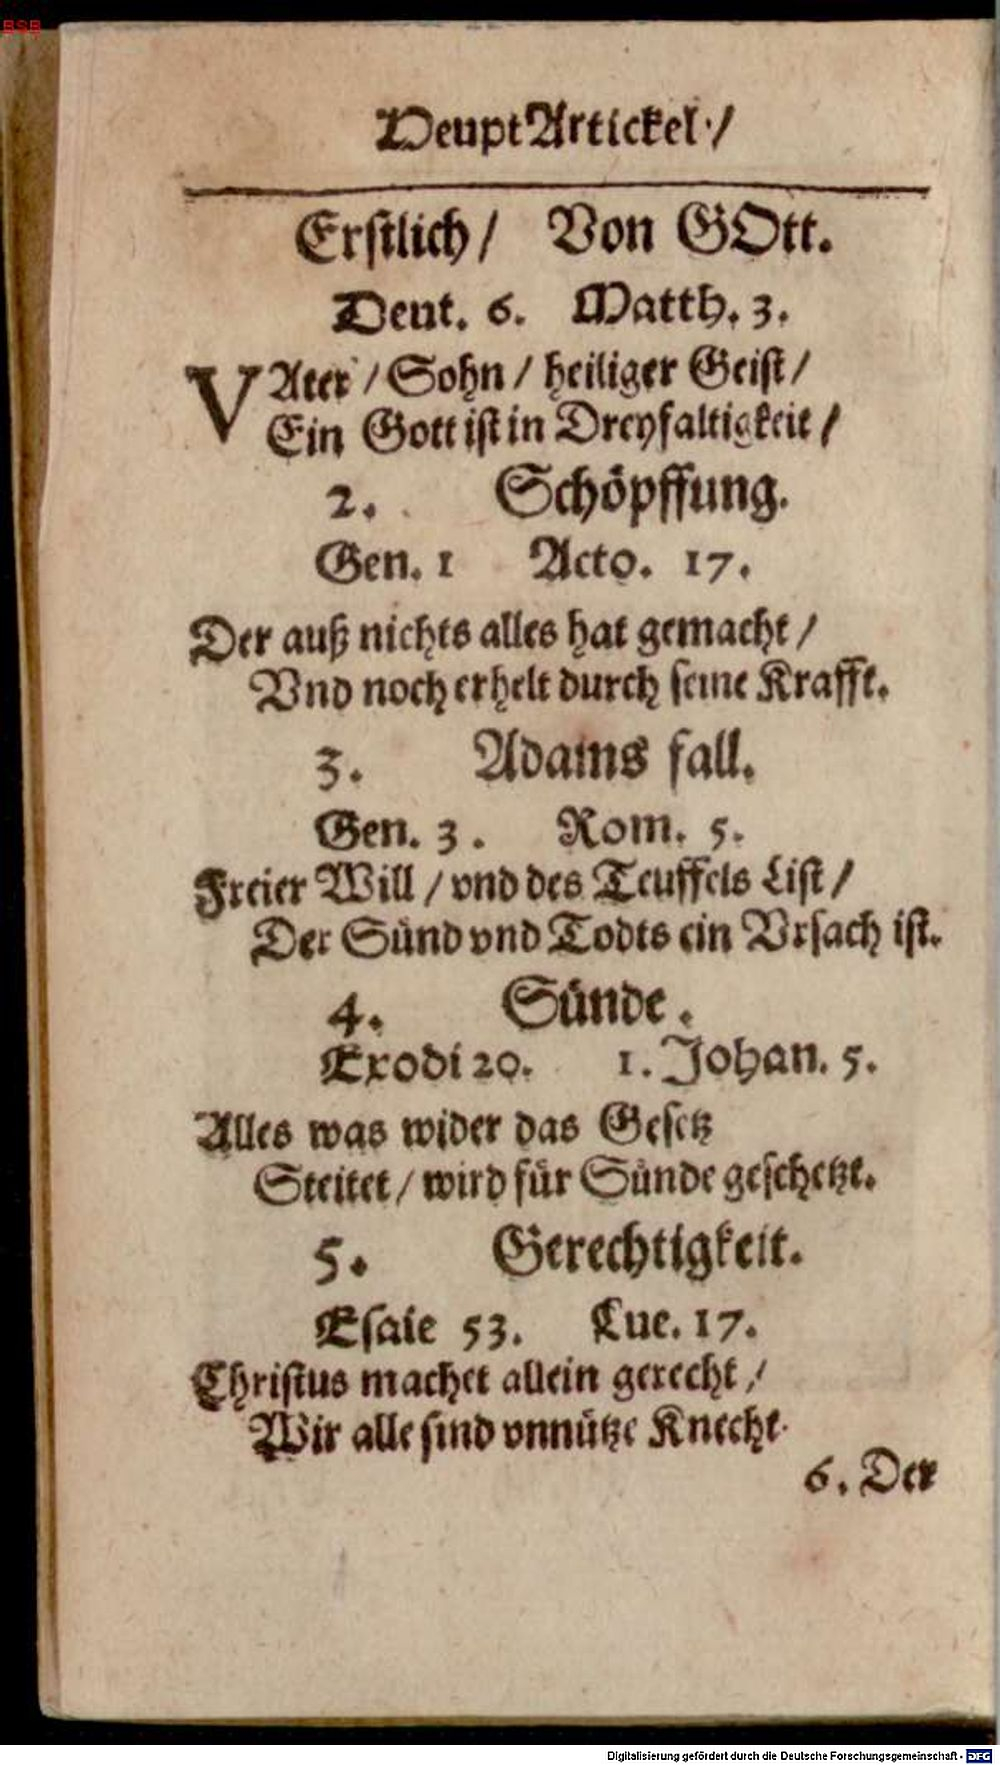 BSB
HeuptArtickel /
Erstlich / Von GOtt.
Deut. 6. Matth. 3.
VAter / Sohn / heiliger Geist /
Ein Gott ist in Dreyfaltigkeit /
2. Schöpffung.
Gen. 1 Acto. 17.
Der auß nichts alles hat gemacht /
Vnd noch erhelt durch seine Krafft.
3. Adams fall.
Gen. 3. Rom. 5.
Freier Will / vnd des Teuffels List /
Der Sünd vnd Todts ein Vrsach ist.
4. Sünde.
Exodi 20. 1. Johan. 5.
Alles was wider das Gesetz
Steitet / wird für Sünde geschetzt.
5. Gerechtigkeit.
Esaie 53. Luc. 17.
Christus machet allein gerecht /
Wir alle sind vnnütze Knecht.
6. Der
Digitalisierung gefördert durch die Deutsche Forschungsgemeinschaft - DFG